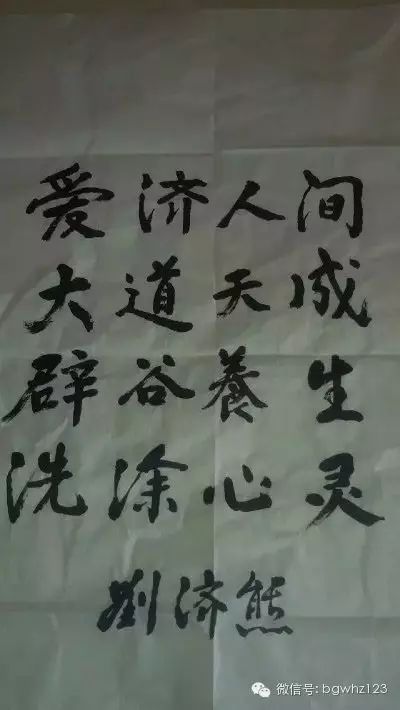 爱济人间
大道天成
辟谷養生
洗涂心灵
劉济熊
微信号: bgwhz123